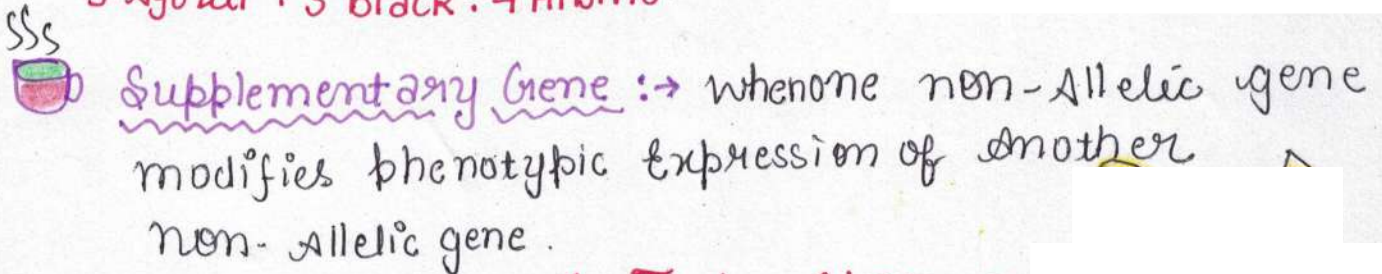 SSS
Supplementary Gene :→ whenone non-Allelic gene
modifies phenotypic Expression of Another
non-Allelic gene.